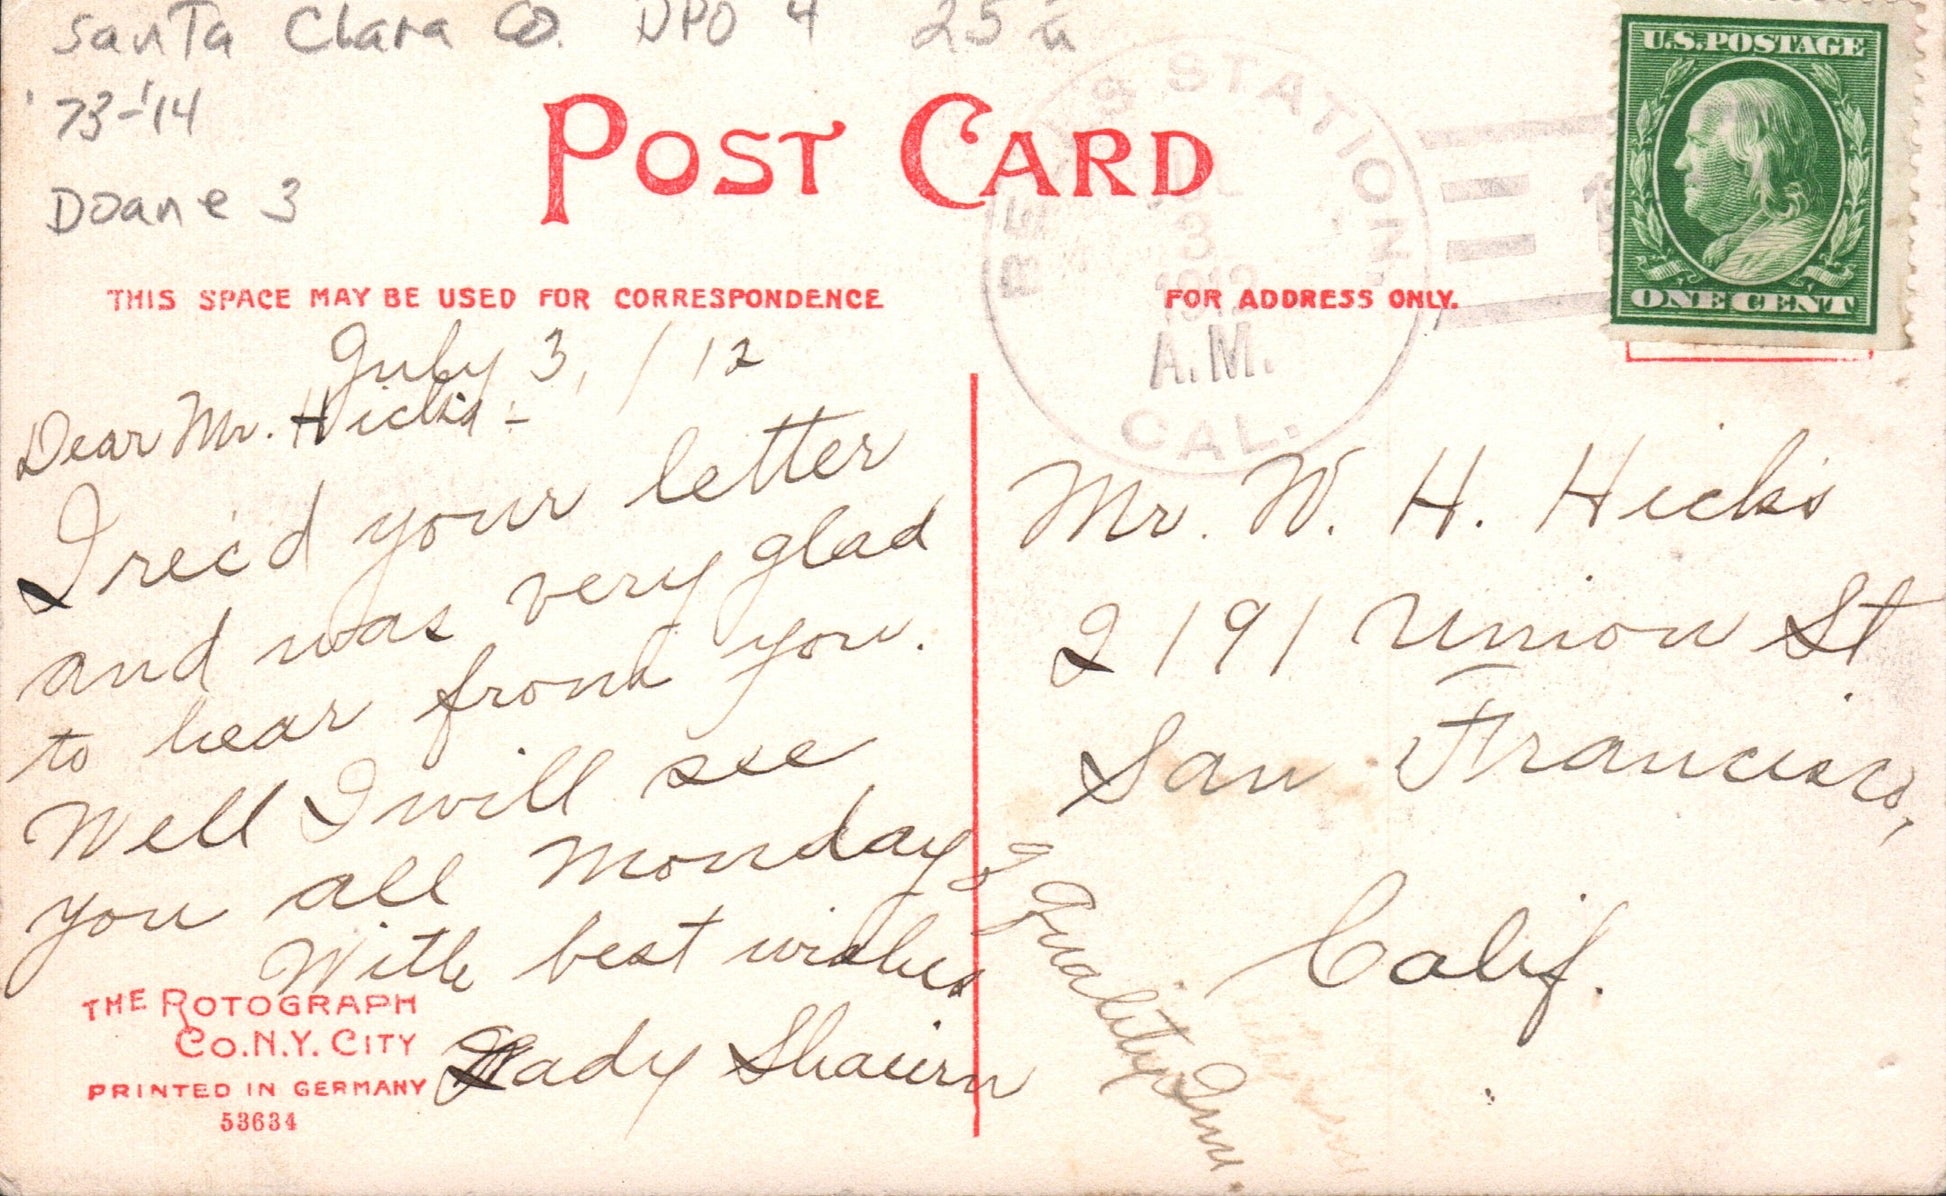 Santa Clara Co. DPO 4 25
'73-'14
Doane 3
POST CARD
THIS SPACE MAY BE USED FOR CORRESPONDENCE
FOR ADDRESS ONLY.
STATION
3
1912
A.M.
CAL.
U.S. POSTAGE
ONE CENT
July 3, /12
Dear Mr. Hicks -
I rec'd your letter
and was very glad
to hear from you.
Well I will see
you all Monday
With best wishes
Lady
Quality Inn
Mr. W. H. Hicks
2191 Union St
San Francisco,
Calif.
THE ROTOGRAPH
CO. N.Y. CITY
PRINTED IN GERMANY
53634